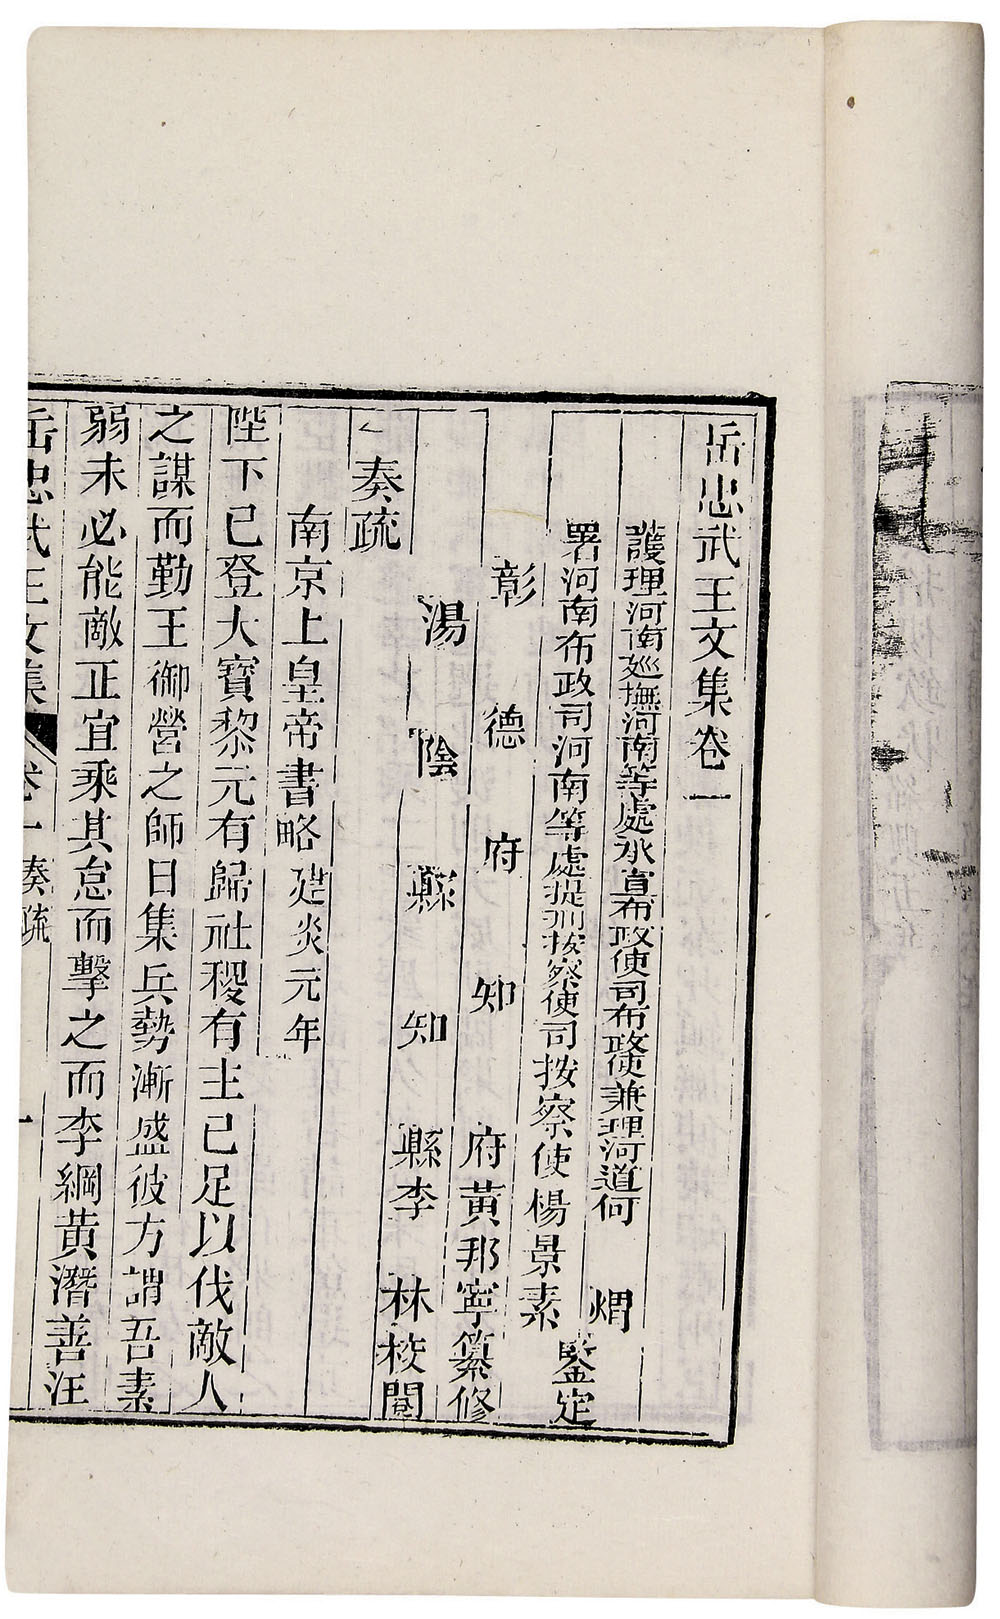 岳忠武王文集卷一
護理河南巡撫河南等處承宣布政使司布政使兼理河道何 煟
署河南布政司河南等處提刑按察使司按察使楊景素
鑒定
彰德府知府黃邦寧纂修
湯陰縣知縣李 林校閱
奏疏
南京上皇帝書略 建炎元年
陛下已登大寶黎元有歸社稷有主已足以伐敵人
之謀而勤王御營之師日集兵勢漸盛彼方謂吾素
弱未必能敵正宜乘其怠而擊之而李綱黃潛善汪
岳忠武王文集 卷一 奏疏 一